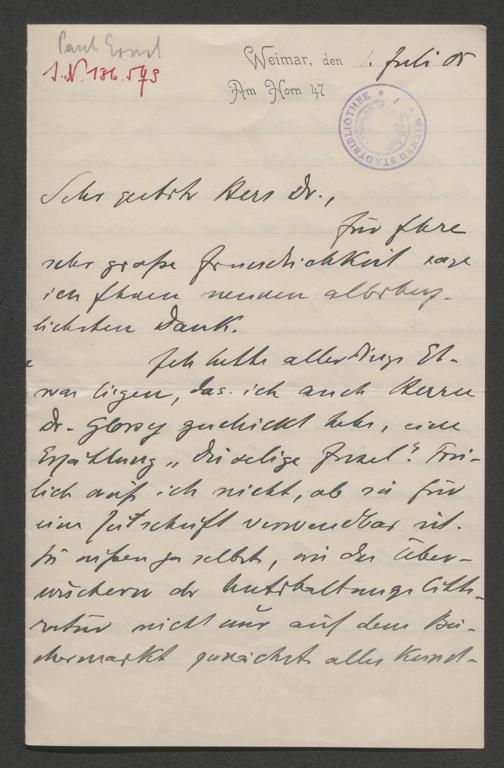 Paul Ernst
I.N. 136.573
Weimar, den 1. Juli 05
Am Horn 47
WIENER STADTBIBLIOTHEK
Sehr geehrter Herr Dr.,
für Ihre
sehr große Freundlichkeit sage
ich Ihnen meinen allerherz-
lichsten Dank.
Ich hätte allerdings Et-
was liegen, das ich auch Herrn
Dr. Glossy geschickt habe, eine
Erzählung „Die selige Insel“. Frei-
lich weiß ich nicht, ob sie für
eine Zeitschrift verwendbar ist.
Sie wissen ja selbst, wie das Über-
wuchern der Unterhaltungslitte-
ratur nicht nur auf dem Bü-
chermarkt zunächst alles Kunst-